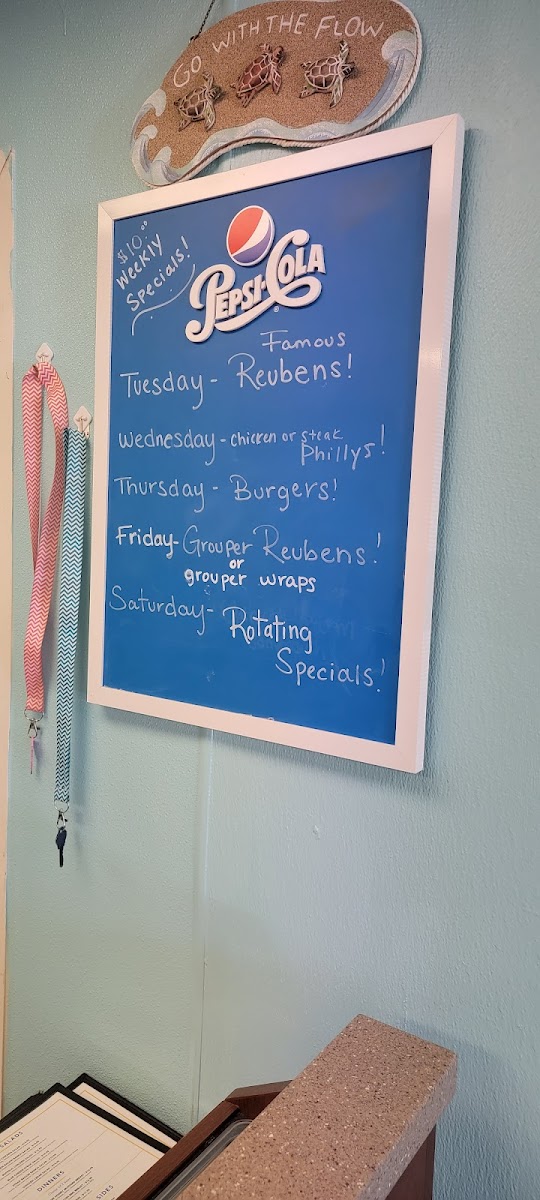 GO WITH THE FLOW
$10.00
Weekly
Specials!
PEPSI-COLA
Famous
Tuesday - Reubens!
Wednesday - chicken or steak
Phillys!
Thursday - Burgers!
Friday - Grouper Reubens!
or
grouper wraps
Saturday - Rotating
Specials!
SALADS
DINNERS
SIDES